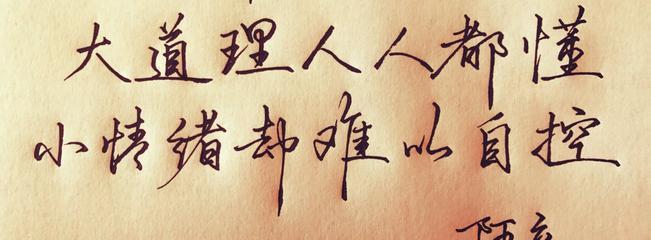 大道理人人都懂
小情绪却难以自控